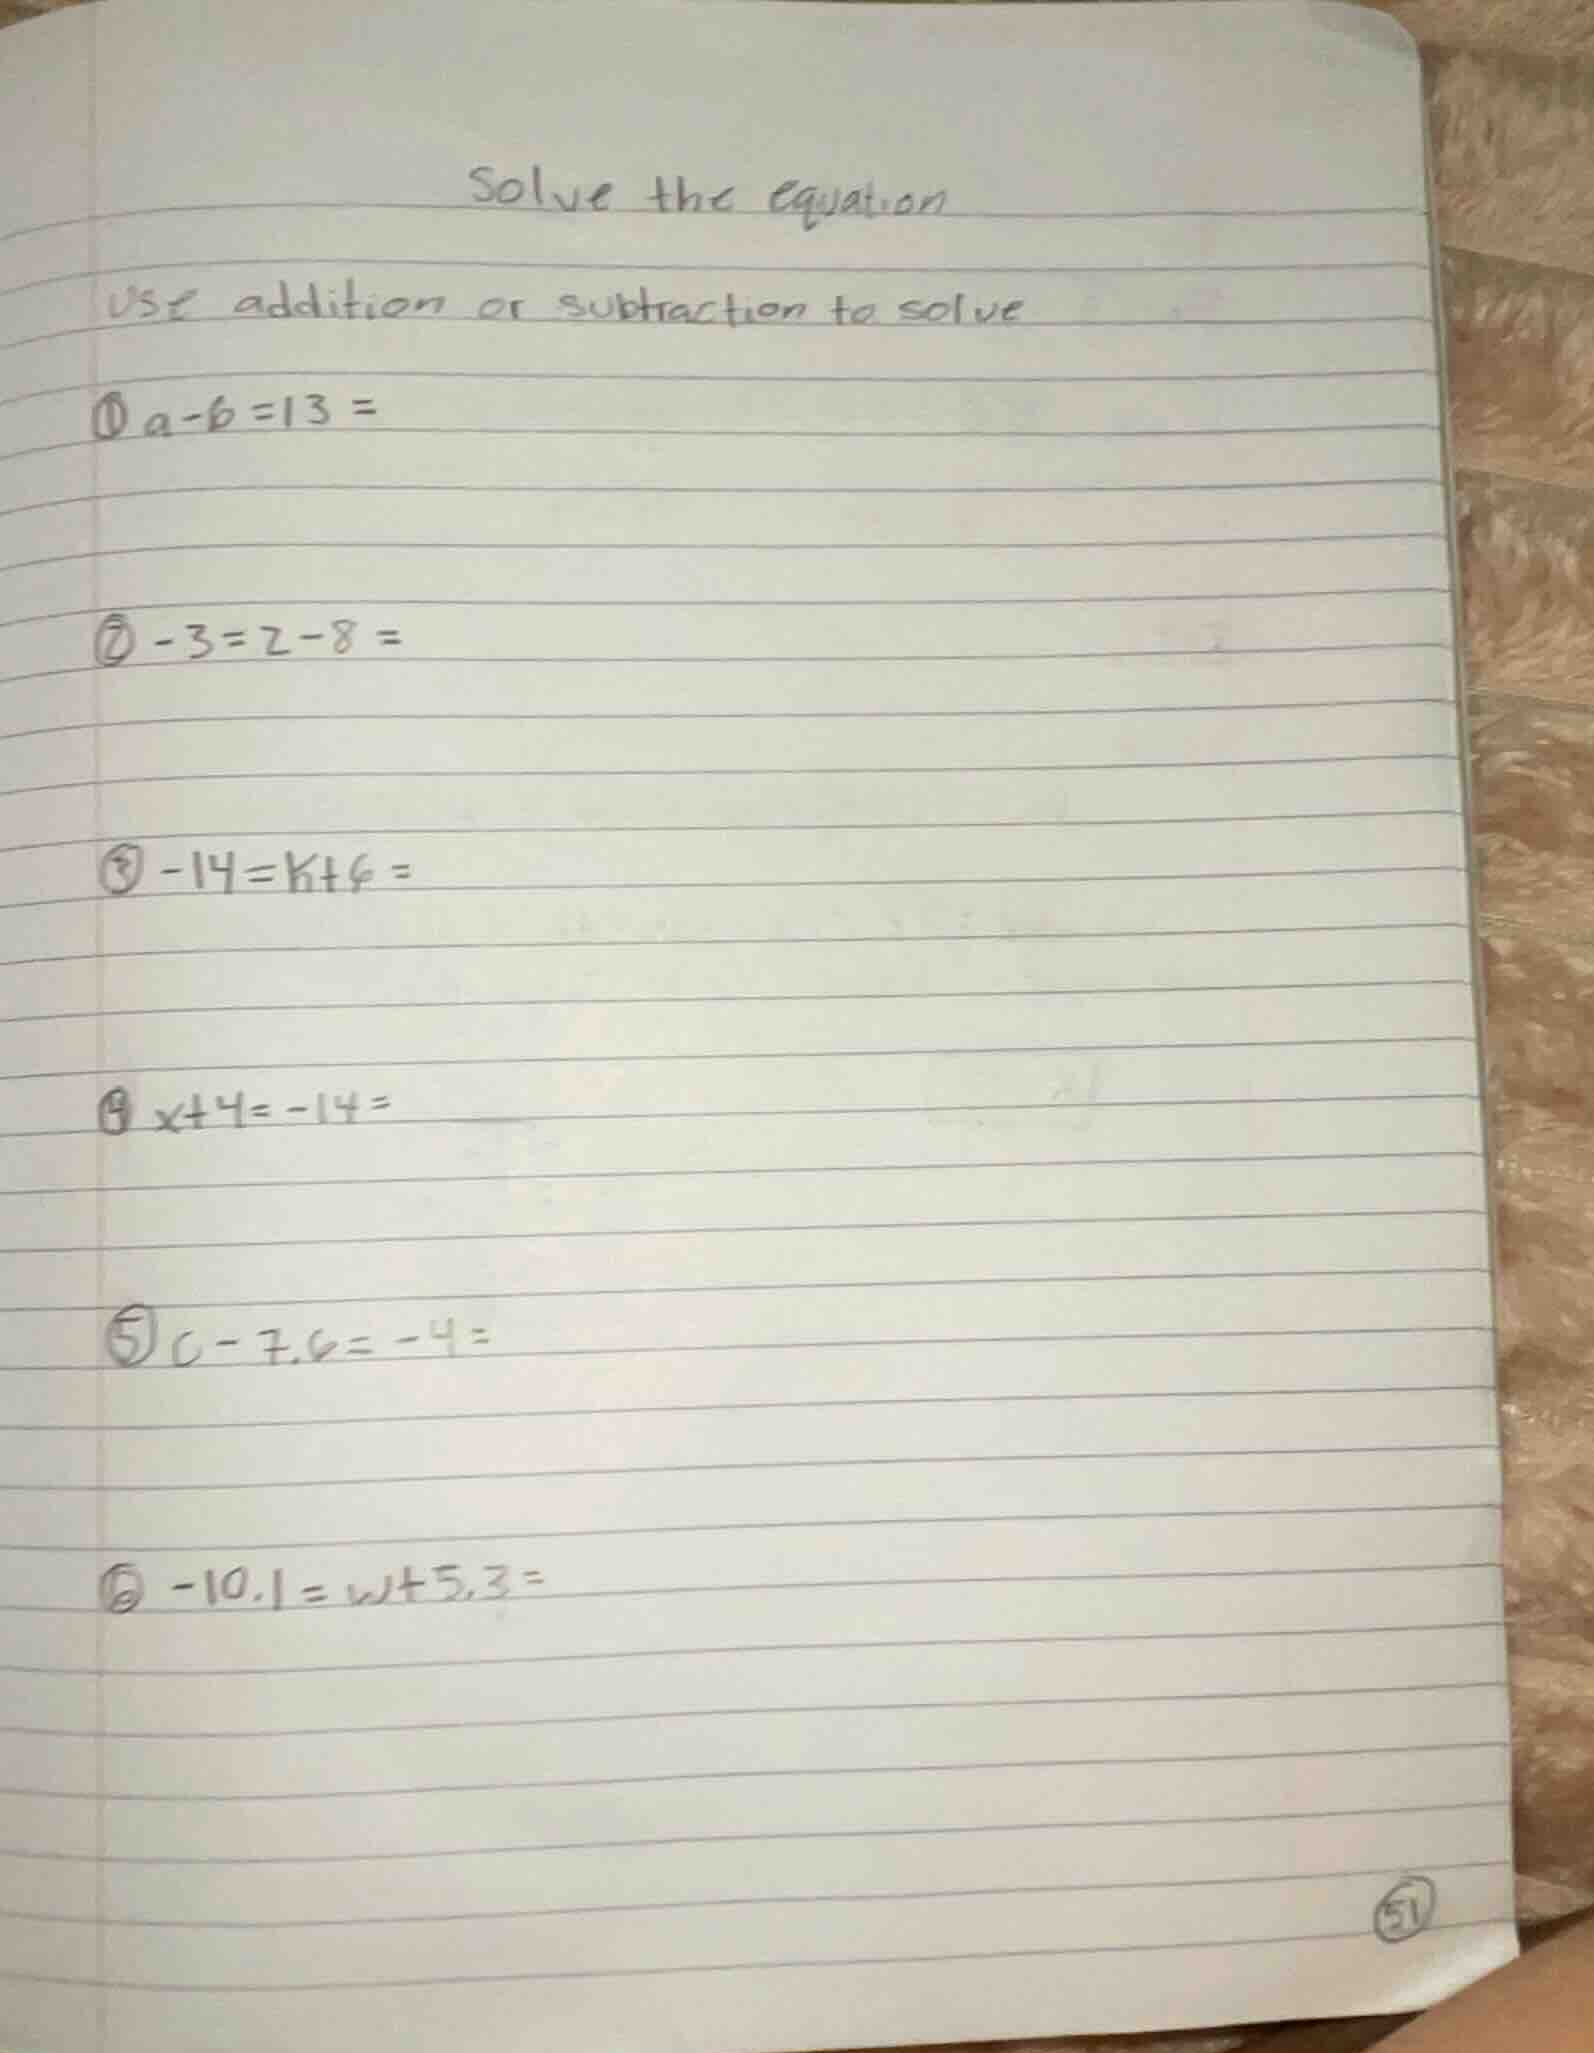 Solve the equation
Use addition or subtraction to solve
① a-6=13=
② -3=z-8=
③ -14=k+6=
④ x+4=-14=
⑤ c-7.6=-4=
⑥ -10.1=w+5.3=
51